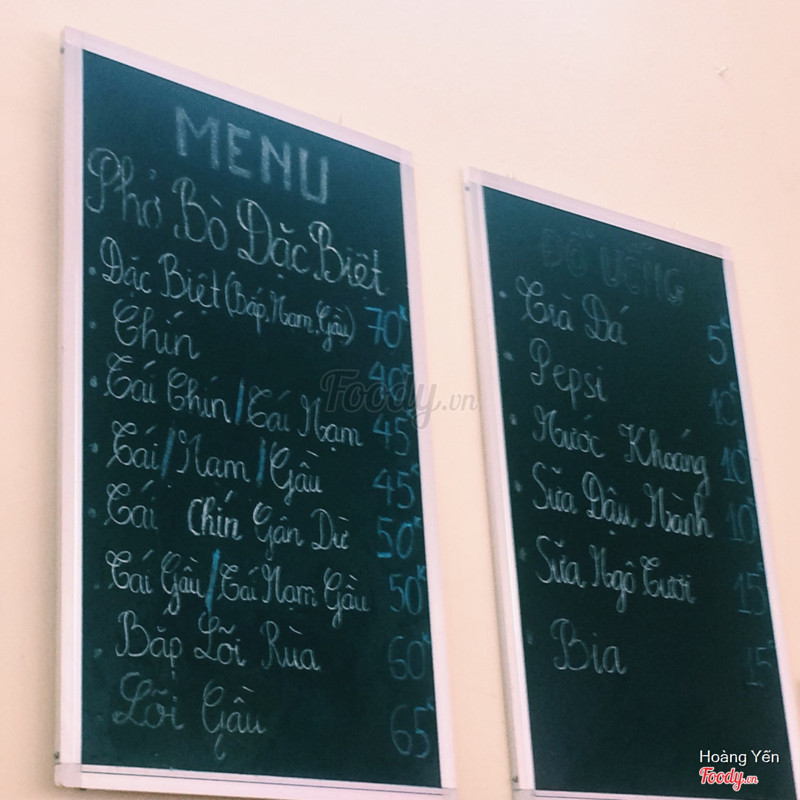 MENU
Phở Bò Đặc Biệt
Đặc Biệt (Bắp, Nạm, Gầu) 70K
Chín 40K
Tái Chín / Tái Nạm 45K
Tái / Nạm / Gầu 45K
Tái Chín Gân Dừ 50K
Tái Gầu / Tái Nạm Gầu 50K
Bắp Lõi Rùa 60K
Lõi Gầu 65K
ĐỒ UỐNG
Trà Đá 5K
Pepsi 10K
Nước Khoáng 10K
Sữa Đậu Nành 10K
Sữa Ngô Tươi 15K
Bia 15K
Foody.vn
Hoàng Yến
Foody.vn